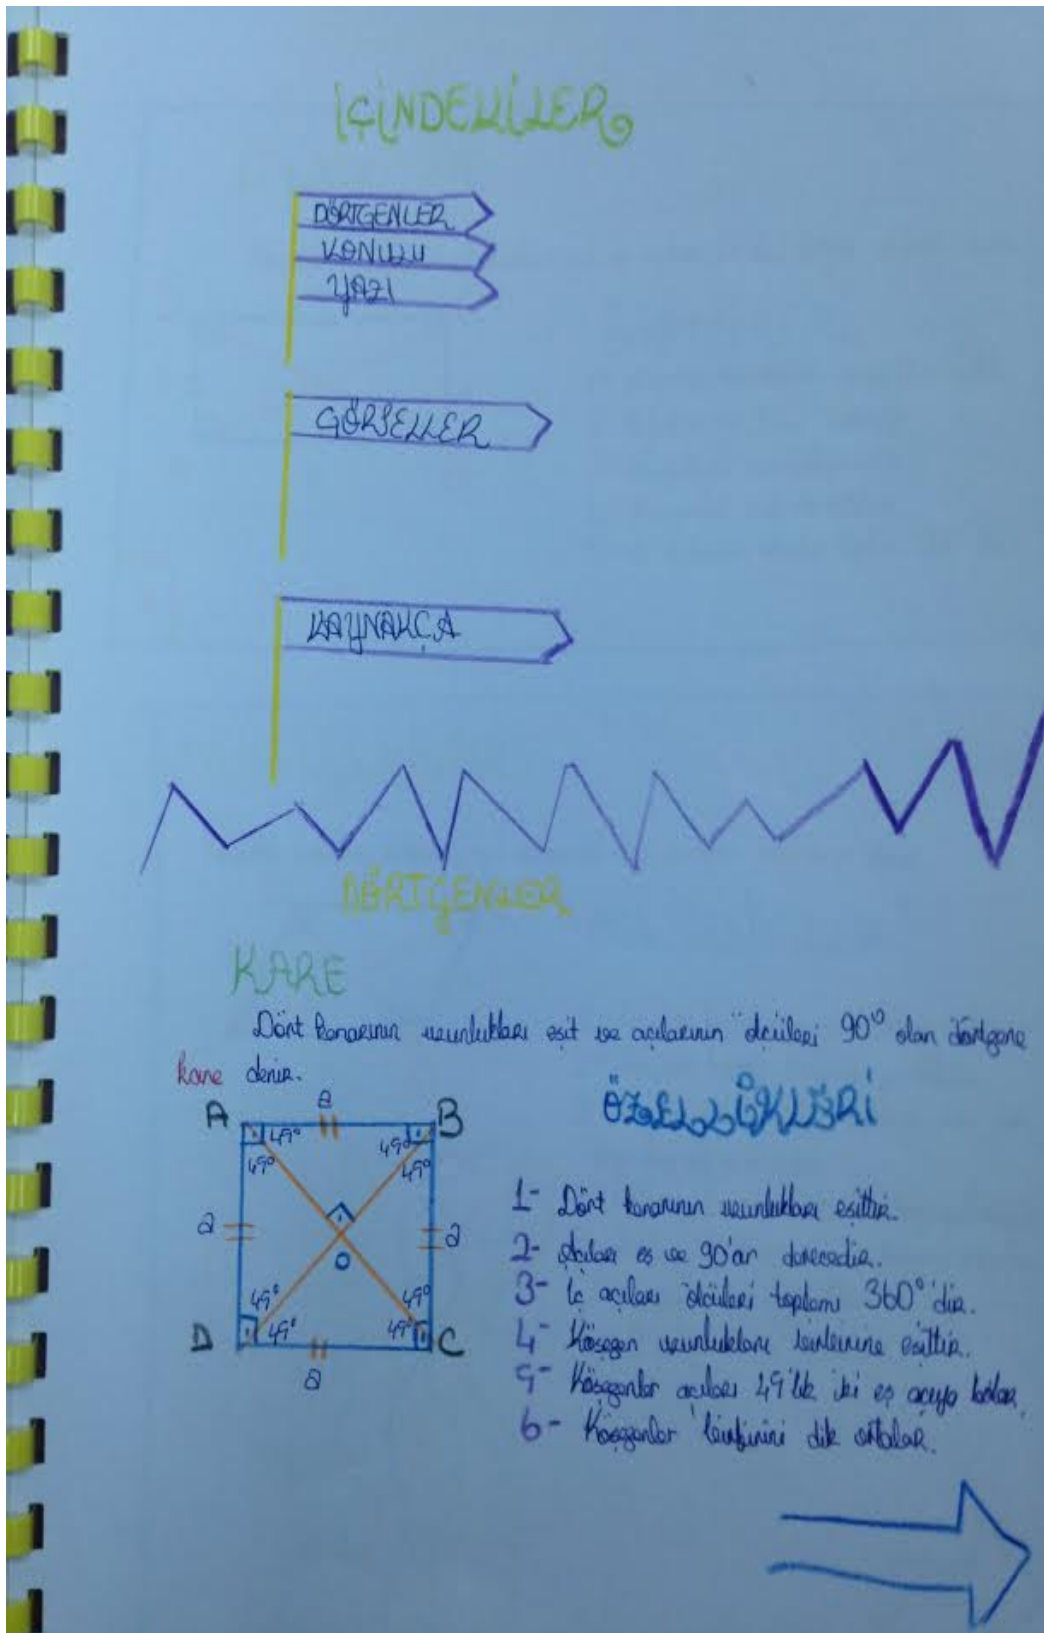 İÇİNDEKİLER
DÖRTGENLER
KONULU
YAZI
GÖRSELLER
KAYNAKÇA
DÖRTGENLER
KARE
Dört kenarının uzunlukları eşit ve açılarının ölçüleri 90° olan dörtgene
kare denir.
ÖZELLİKLERİ
A a B
45° 45°
45° 45°
a a
O
45° 45°
45° 45°
D a C
1- Dört kenarının uzunlukları eşittir.
2- Açıları eş ve 90'ar derecedir.
3- İç açıları ölçüleri toplamı 360°'dir.
4- Köşegen uzunlukları birbirine eşittir.
5- Köşegenler açıları 45'lik iki eş açıya böler.
6- Köşegenler birbirini dik ortalar.